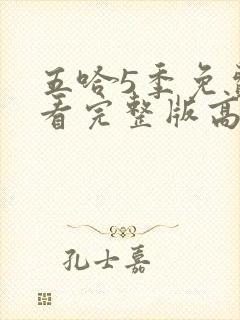 五哈5季免费
看完整版高
孔士嘉